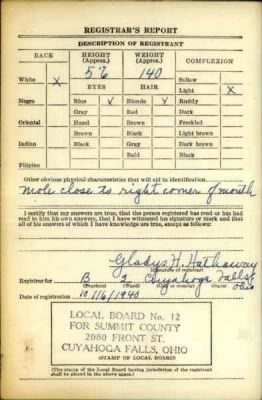 REGISTRAR'S REPORT
DESCRIPTION OF REGISTRANT
RACE HEIGHT (Approx.) WEIGHT (Approx.) COMPLEXION
5' 6 140
White X EYES HAIR Sallow
Light X
Negro Blue ✓ Blonde ✓ Ruddy
Gray Red Dark
Oriental Hazel Brown Freckled
Brown Black Light brown
Indian Black Gray Dark brown
Bald Black
Filipino
Other obvious physical characteristics that will aid in identification
Mole close to right corner of mouth
I certify that my answers are true, that the person registered has read or has had
read to him his own answers, that I have witnessed his signature or mark and that
all of his answers of which I have knowledge are true, except as follows:
Gladys H. Hathaway
(Signature of registrar)
Registrar for B Cuyahoga Falls Ohio
(Precinct) (Ward) (City or county) (State)
Date of registration 10/16/1940
LOCAL BOARD No. 12
FOR SUMMIT COUNTY
2080 FRONT ST.
CUYAHOGA FALLS, OHIO
(STAMP OF LOCAL BOARD)
(The stamp of the Local Board having jurisdiction of the registrant
shall be placed in the above space.)